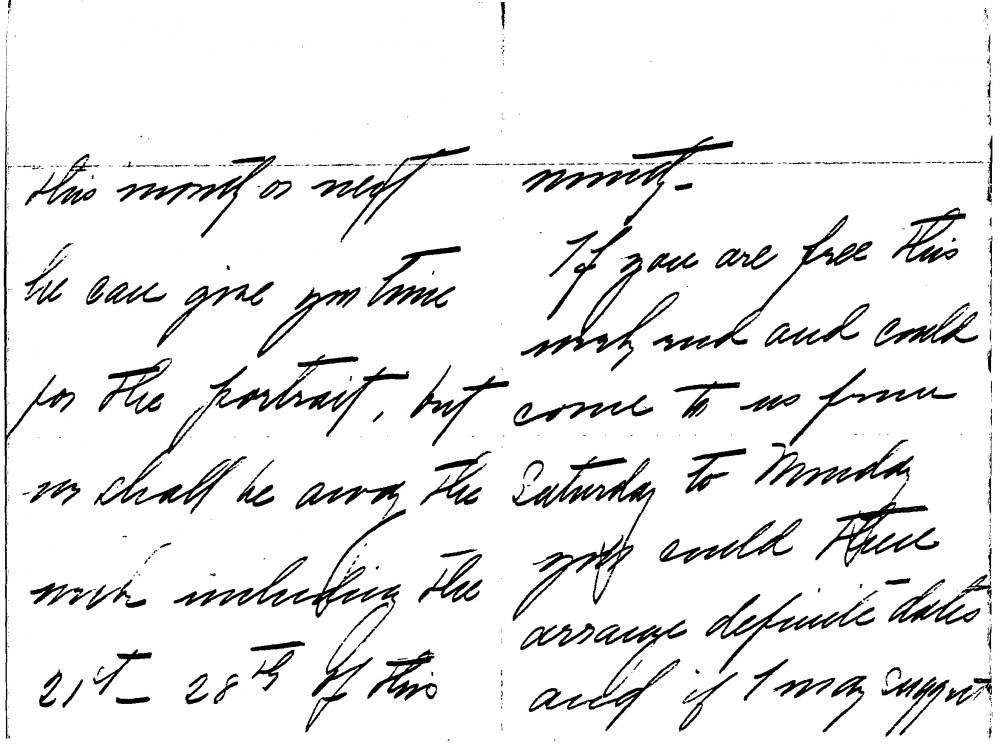 this month or next
he can give you time
for the portrait, but
we shall be away the
week including the
21st – 28th of this
month –
If you are free this
week end and could
come to us from
Saturday to Monday
you could then
arrange definite dates
and if I may suggest